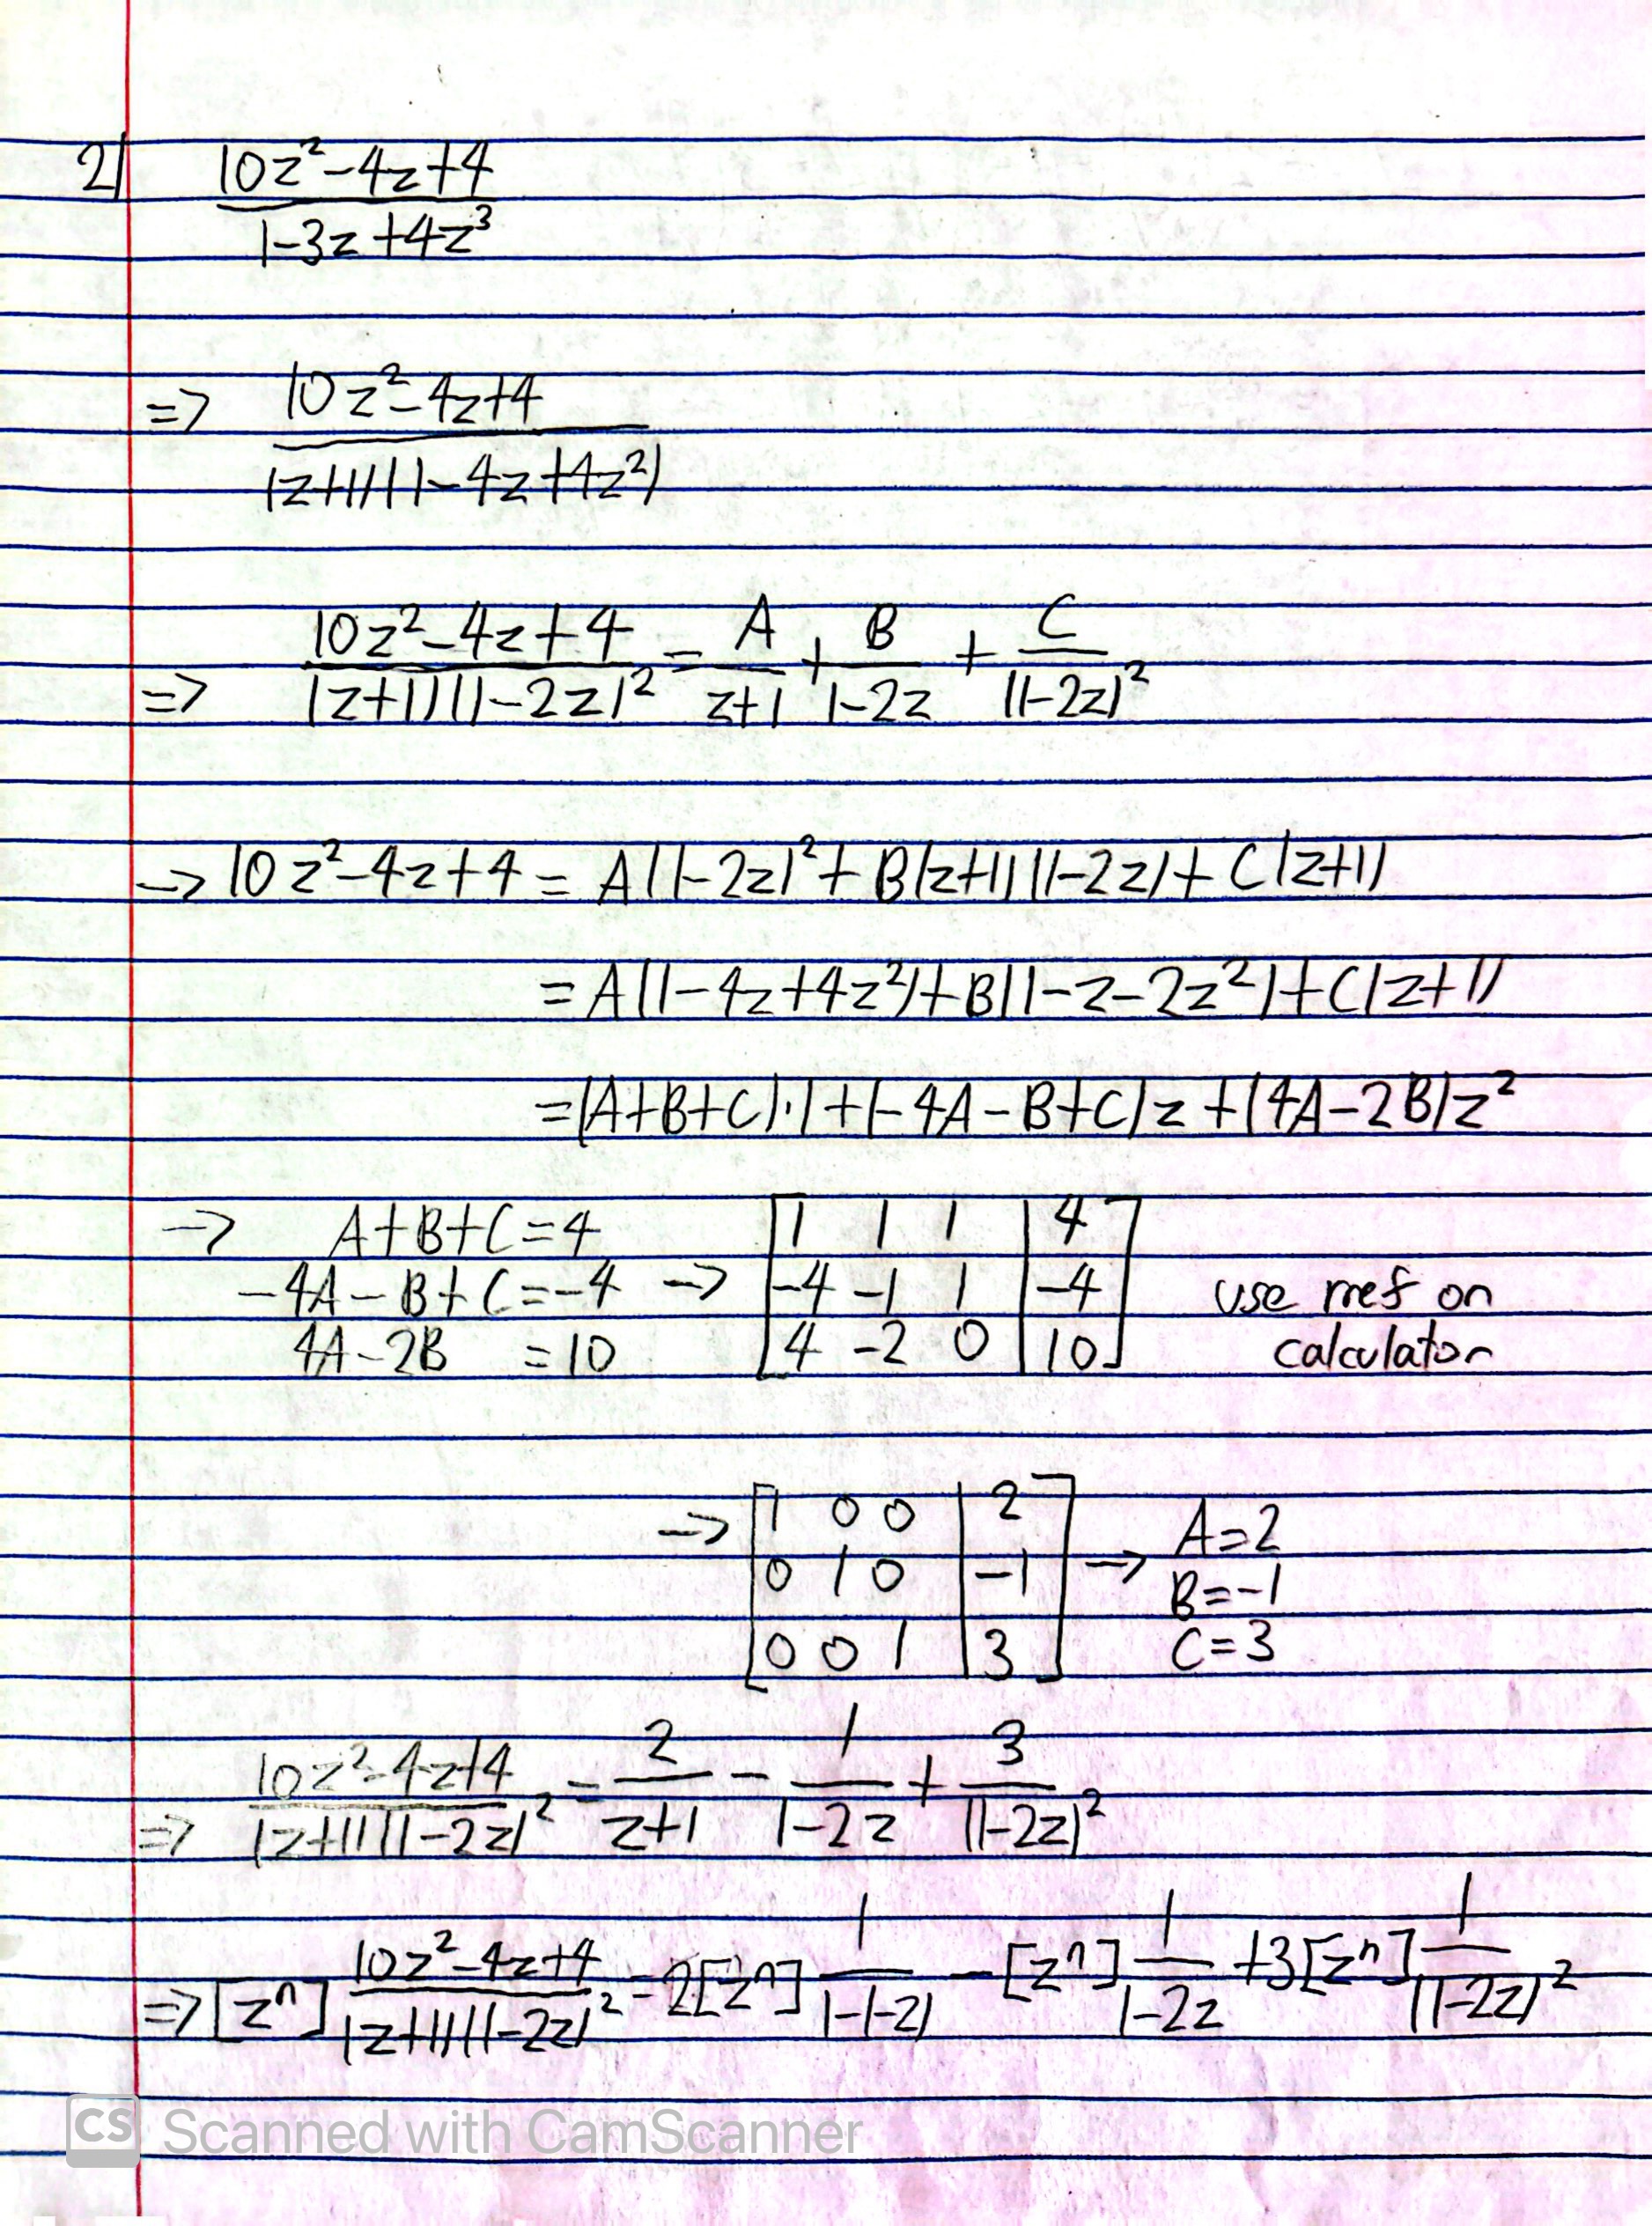 2) (10z²-4z+4)/(1-3z+4z³)
=> (10z²-4z+4)/((z+1)(1-4z+4z²))
=> (10z²-4z+4)/((z+1)(1-2z)²) = A/(z+1) + B/(1-2z) + C/(1-2z)²
-> 10z²-4z+4 = A(1-2z)² + B(z+1)(1-2z) + C(z+1)
= A(1-4z+4z²)+B(1-z-2z²)+C(z+1)
= (A+B+C)·1+(-4A-B+C)z+(4A-2B)z²
-> A+B+C=4 [1 1 1 | 4]
-4A-B+C=-4 -> [-4 -1 1 | -4] use rref on
4A-2B =10 [4 -2 0 | 10] calculator
-> [1 0 0 | 2] A=2
[0 1 0 | -1] -> B=-1
[0 0 1 | 3] C=3
=> (10z²-4z+4)/((z+1)(1-2z)²) = 2/(z+1) - 1/(1-2z) + 3/(1-2z)²
=> [zⁿ] (10z²-4z+4)/((z+1)(1-2z)²) = 2[zⁿ] 1/(1-(-z)) - [zⁿ] 1/(1-2z) + 3[zⁿ] 1/(1-2z)²
CS Scanned with CamScanner